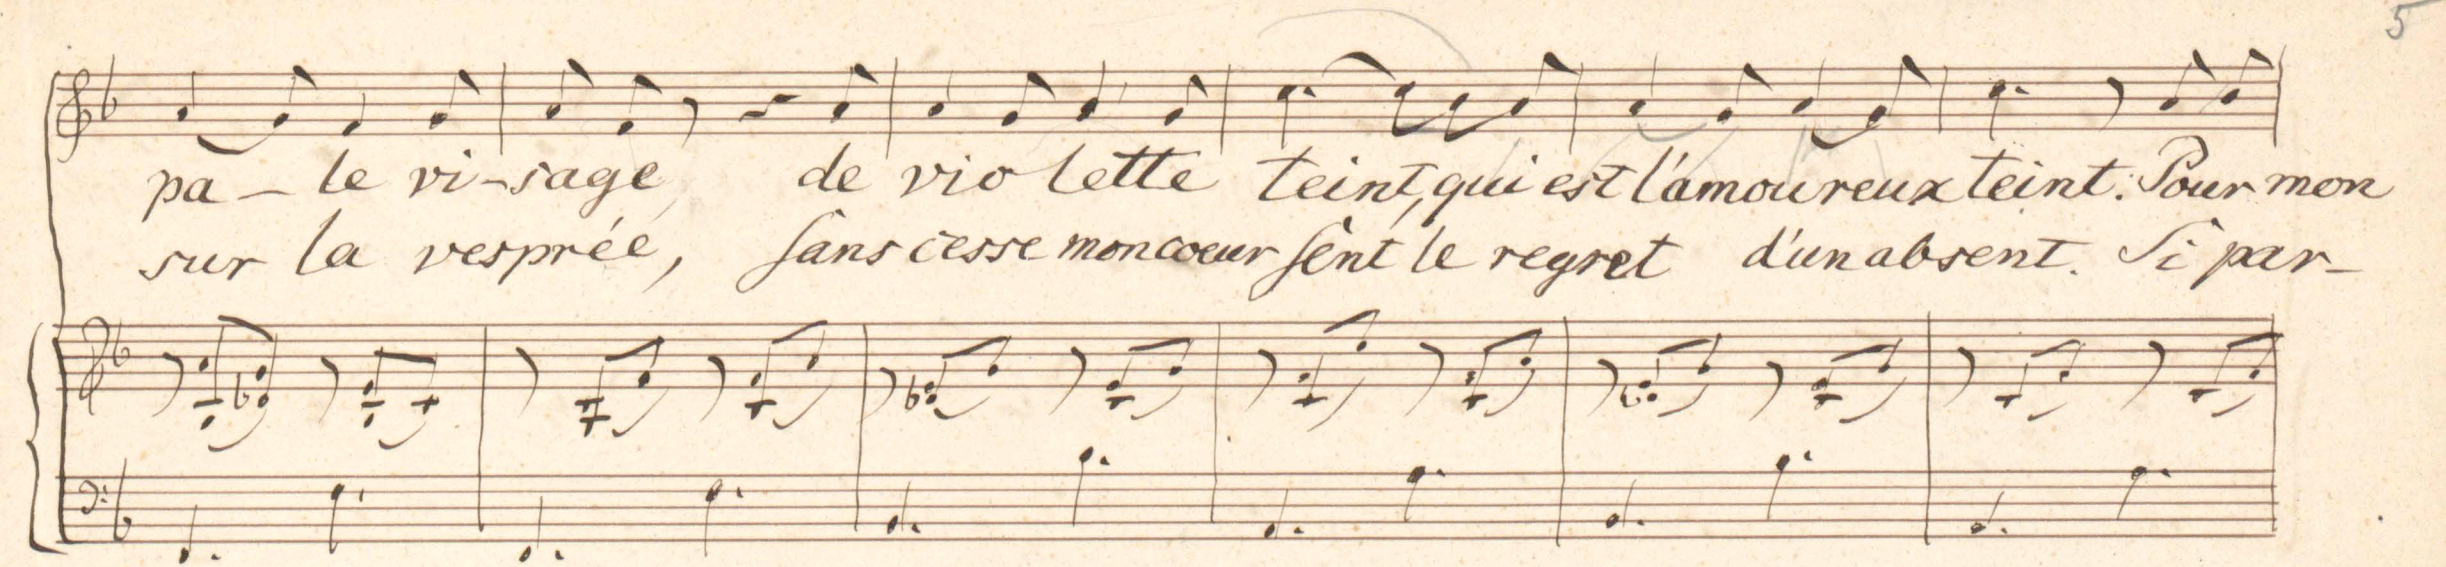 5
pa - le vi - sage de vio lette teint, qui est l'amoureux teint. Pour mon
sur la vesprée, sans cesse mon coeur sent le regret d'un absent. Si par-